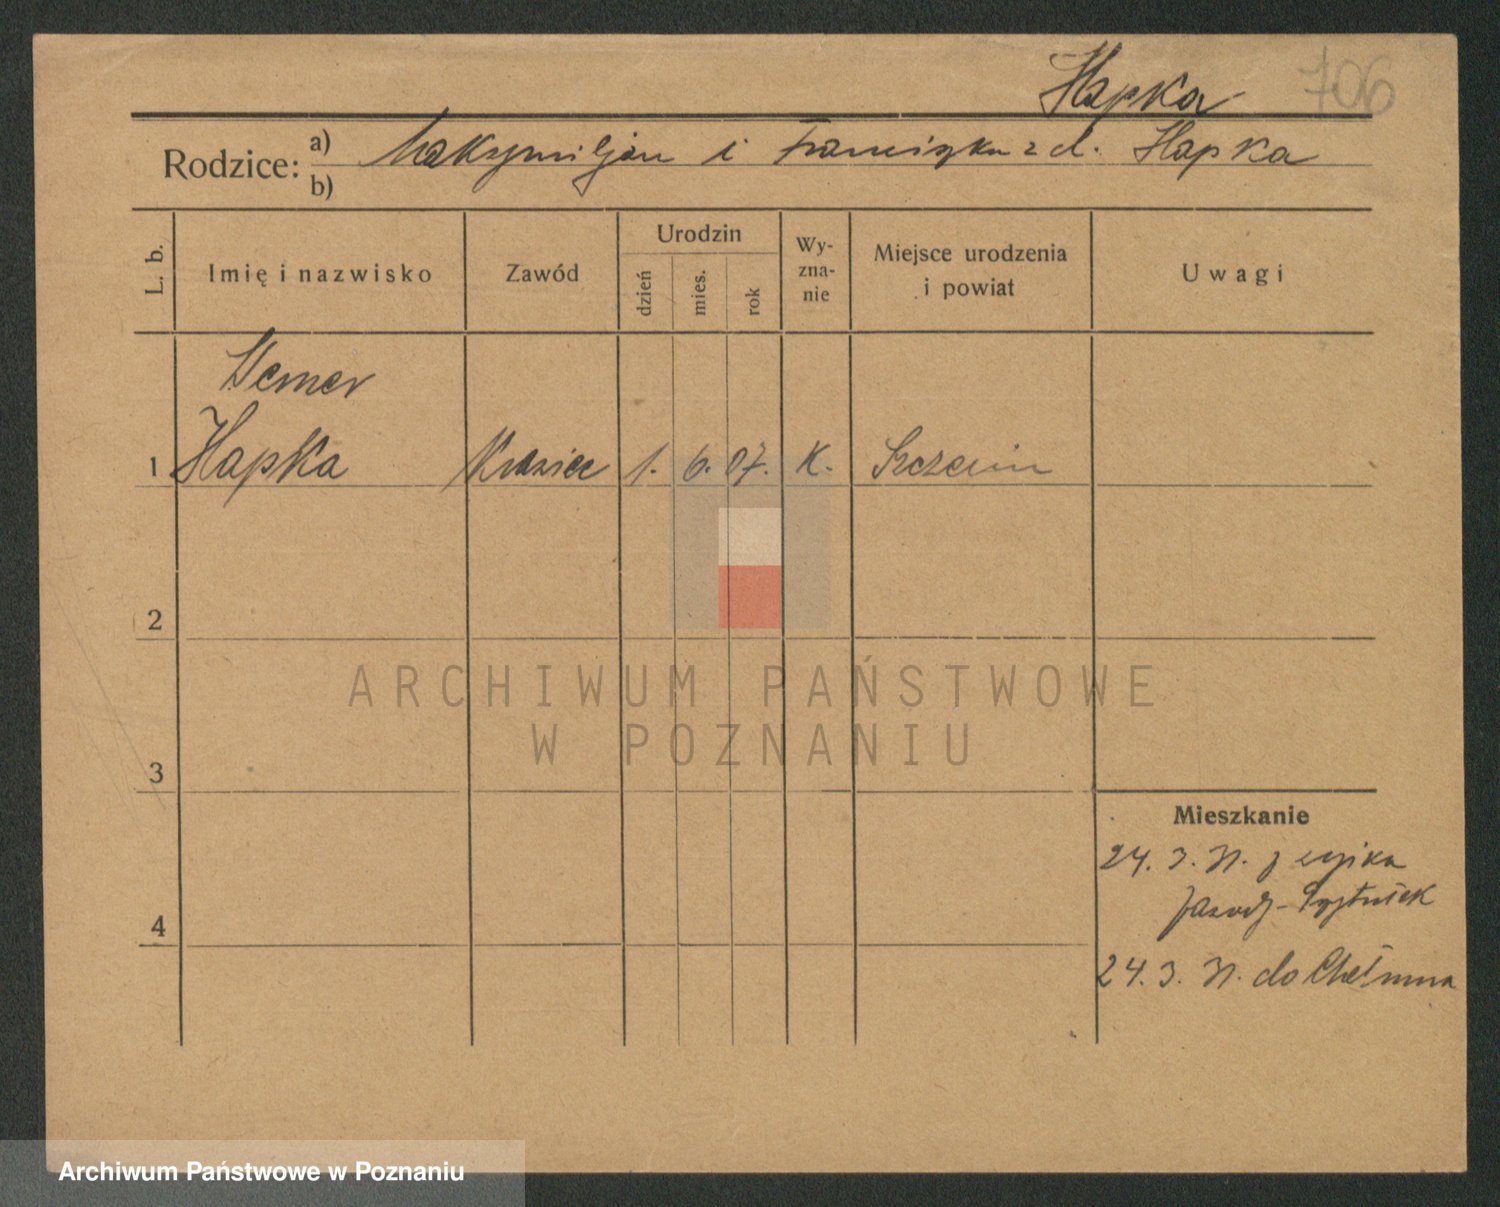 Hapka 706
Rodzice: a) Maksymiljan i Franciszka z d. Hapka
b)
L. b.
Imię i nazwisko
Zawód
Urodzin
dzień
mies.
rok
Wy-
zna-
nie
Miejsce urodzenia
i powiat
Uwagi
Werner
1 Hapka Krawiec 1. 6. 07. K. Szczecin
2
3
4
Mieszkanie
24. 3. 31. z
24. 3. 31. do Chełmna
ARCHIWUM PAŃSTWOWE
W POZNANIU
Archiwum Państwowe w Poznaniu